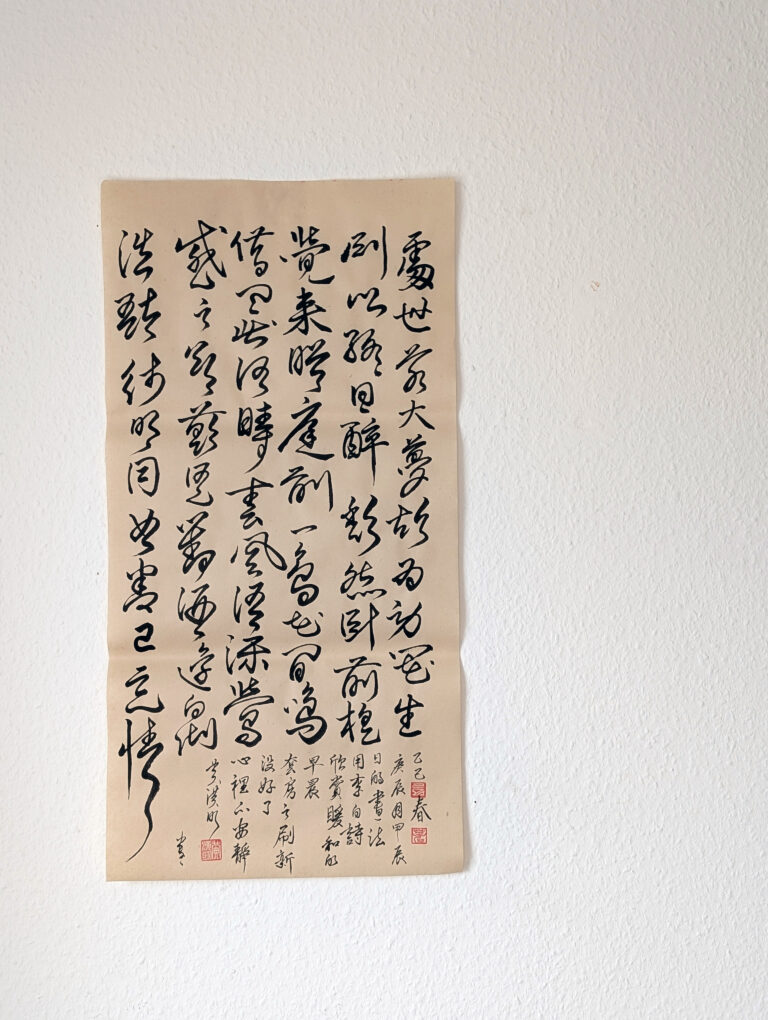 處世若大夢胡為勞其生
所以終日醉頹然臥前楹
覺來眄庭前一鳥花間鳴
借問此何時春風語流鶯
感之欲歎息對酒還自傾
浩歌待明月曲盡已忘情
乙巳春
庚辰月甲辰
日的書法
用李白詩
欣賞暖和的
早晨
套房之刷新
沒好了
心裡不安靜
書